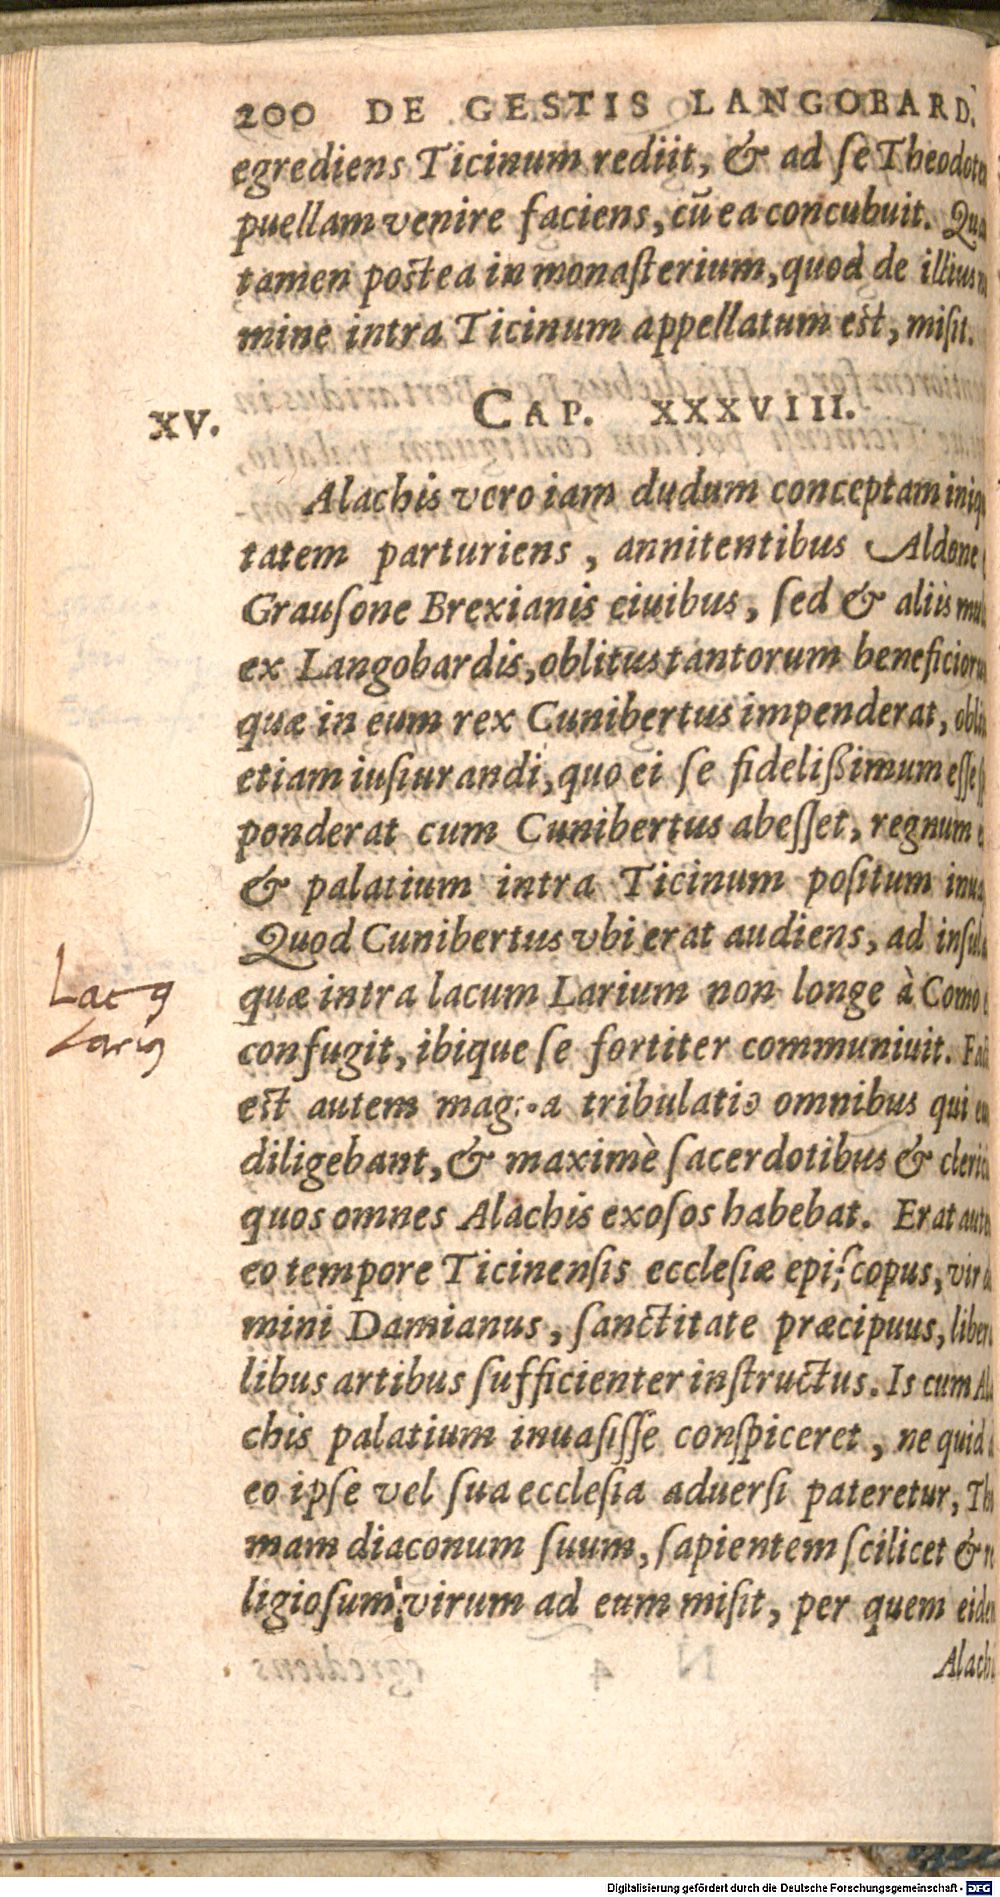 200 DE GESTIS LANGOBARD.
egrediens Ticinum rediit, & ad se
puellam venire faciens, cū ea concubuit.
tamen postea in monasterium, quod de illius
mine intra Ticinum appellatum est, misit.
XV.
CAP. XXXVIII.
Alachis vero iam dudum conceptam
tatem parturiens, annitentibus Aldone
Grausone Brexianis ciuibus, sed & aliis
ex Langobardis, oblitus tantorum
quæ in eum rex Cunibertus impenderat,
etiam iusiurandi, quo ei se fidelißimum esse
ponderat cum Cunibertus abesset, regnum
& palatium intra Ticinum positum
Quod Cunibertus vbi erat audiens, ad
quæ intra lacum Larium non longe à Como
confugit, ibique se fortiter communiuit.
est autem magna tribulatio omnibus qui
diligebant, & maximè sacerdotibus &
quos omnes Alachis exosos habebat. Erat
eo tempore Ticinensis ecclesiæ episcopus, vir
mini Damianus, sanctitate præcipuus,
libus artibus sufficienter instructus. Is cum
chis palatium inuasisse conspiceret, ne quid
eo ipse vel sua ecclesia aduersi pateretur,
mam diaconum suum, sapientem scilicet &
ligiosum virum ad eum misit, per quem
Lacꝰ
Digitalisierung gefördert durch die Deutsche Forschungsgemeinschaft - DFG